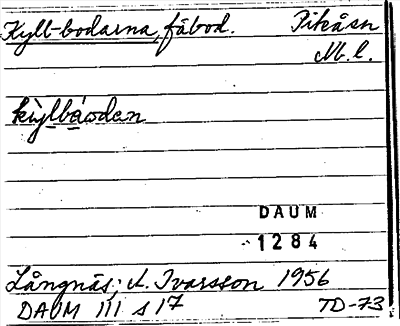 Kylt-bodarna, fäbod. Pikåsn
Nb. l.
kỳlbá͕oden
DAUM
1284
Långnäs; A. Ivarsson 1956
DAUM 111 s 17 TD-73